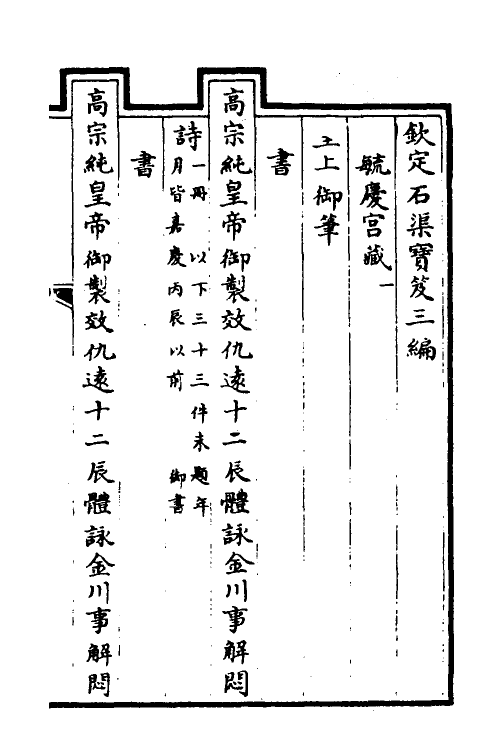 欽定石渠寶笈三編
毓慶宮藏一
上御筆
書
高宗純皇帝御製效仇遠十二辰體詠金川事解悶
詩一冊 以下三十三件未題年
月皆嘉慶丙辰以前 御書
書
高宗純皇帝御製效仇遠十二辰體詠金川事解悶